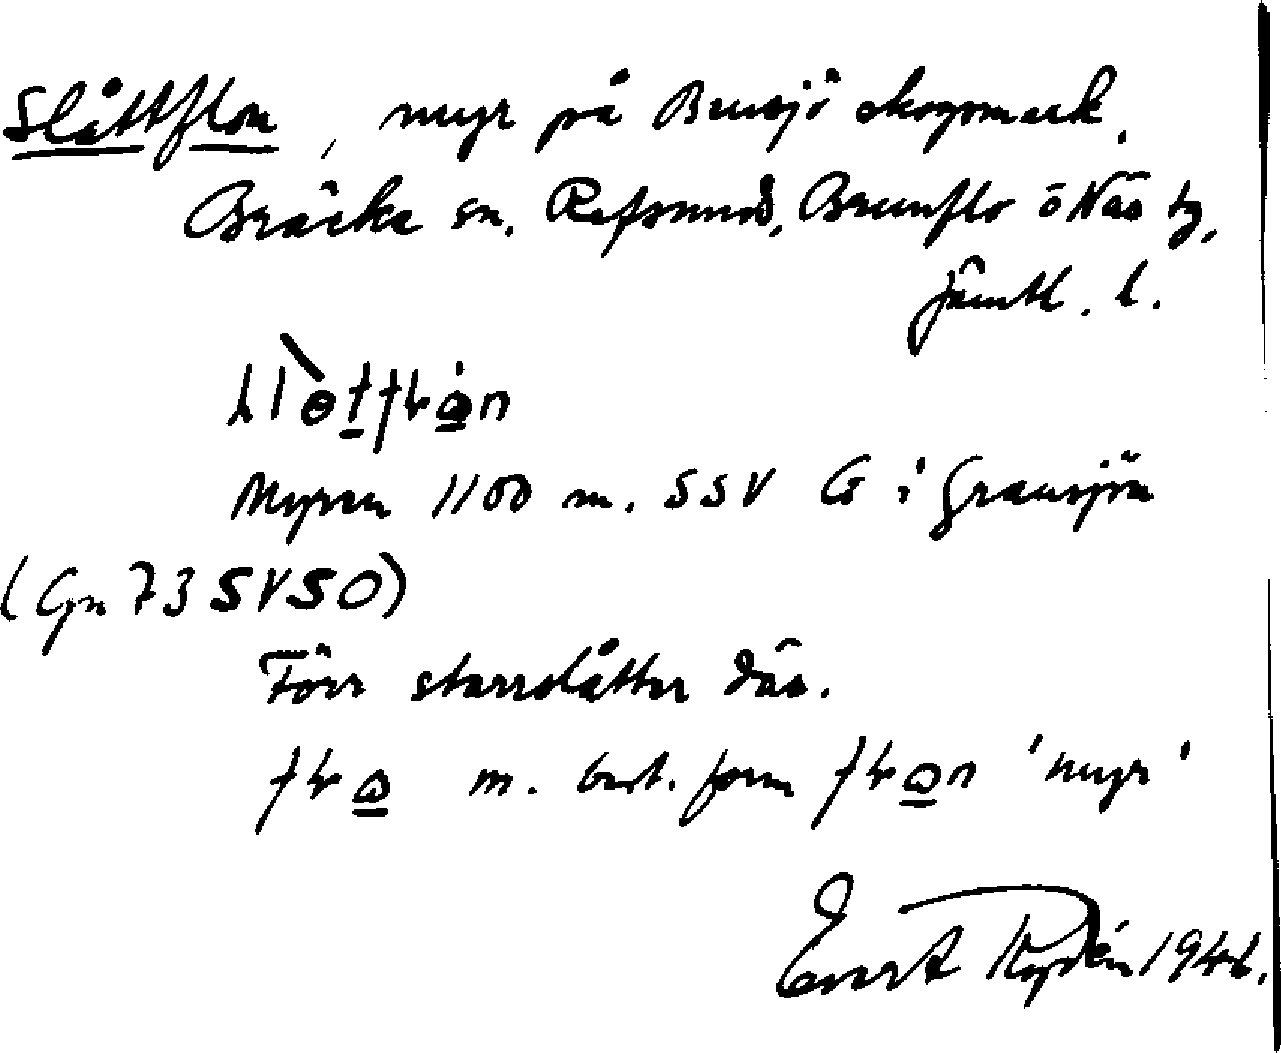 Slåttflon, myr på Bensjö skogsmark,
Bräcke sn. Refsund, Brunflo o Näs tg,
Jämtl. l.
Myren 1100 m. SSV G i Gransjön
(Gn 73 SVSO)
Förr starrslåtter där.
m. best. form 'myr'
Evert Rydén 1946.